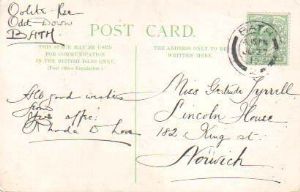 Oolite Rse
Odd Down
BATH
POST CARD.
THIS SPACE MAY BE USED
FOR COMMUNICATION
IN THE BRITISH ISLES ONLY.
(Post Office Regulation.)
THE ADDRESS ONLY TO BE
WRITTEN HERE.
BATH
All good wishes
from
yrs affec:
Rhoda D Love
Miss Gertrude Tyrrell
Lincoln House
182 King St.
Norwich